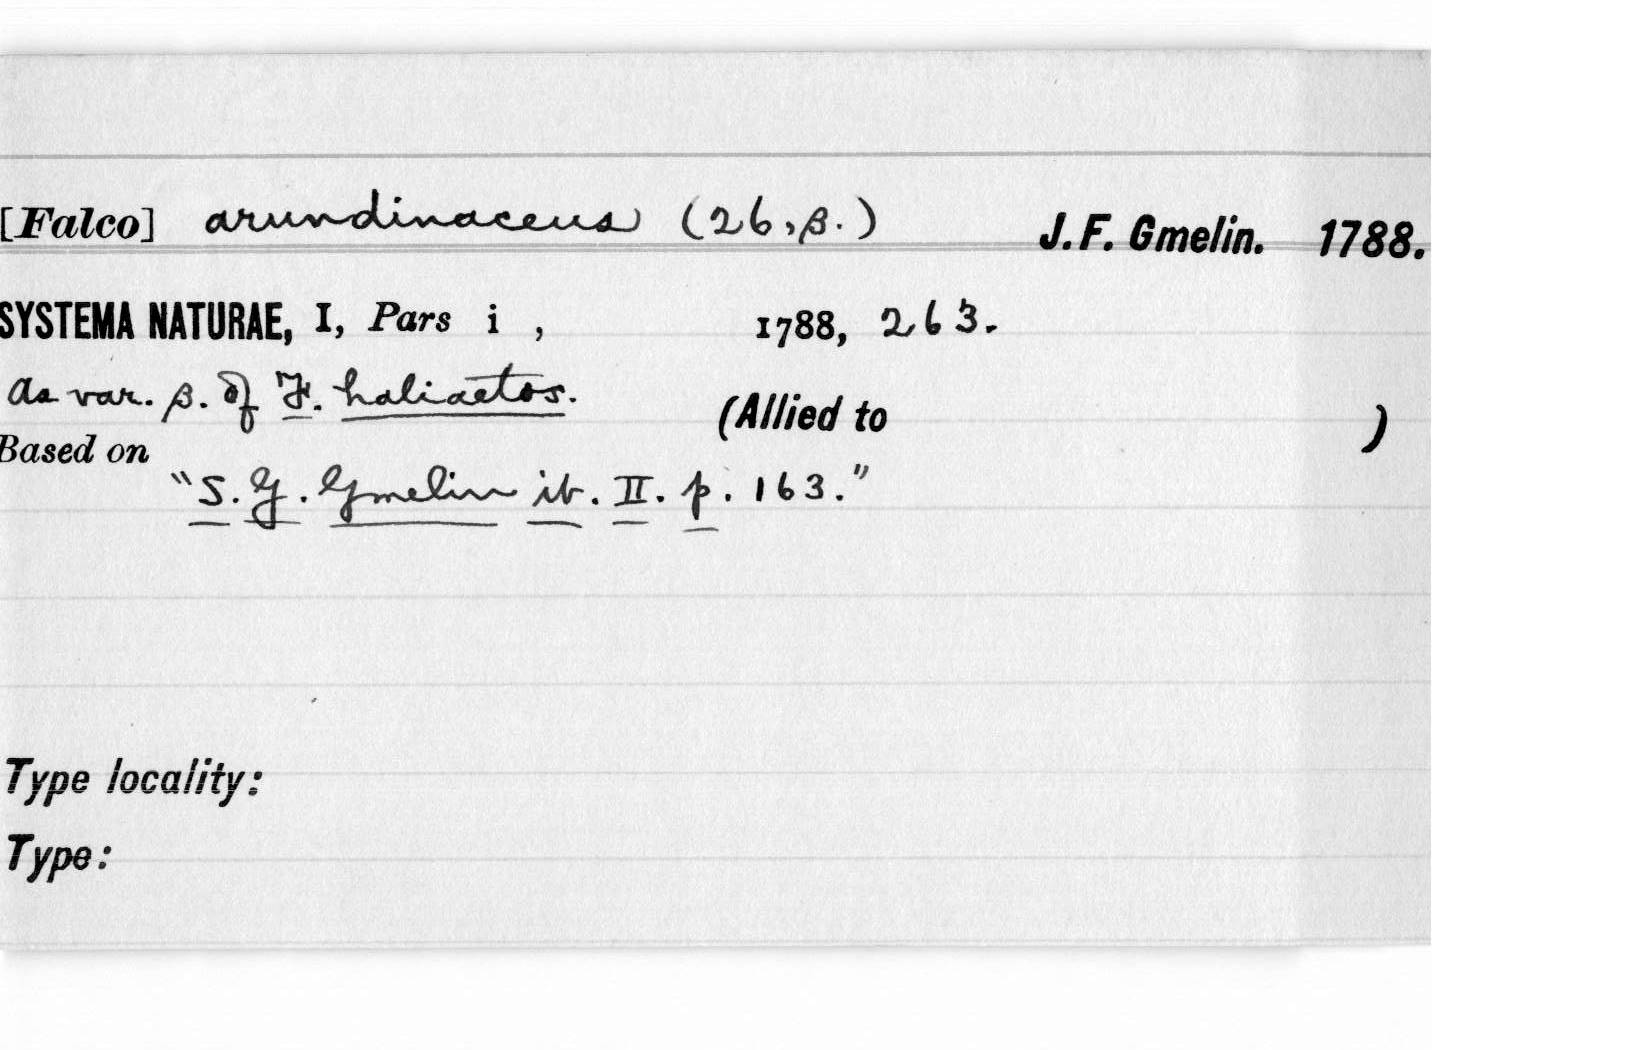 [Falco] arundinaceus (26, β.) J. F. Gmelin. 1788.
SYSTEMA NATURAE, I, Pars i , 1788, 263.
As var. β. of F. haliaetos. (Allied to )
Based on
"S. G. Gmelin it. II. p. 163."
Type locality:
Type: